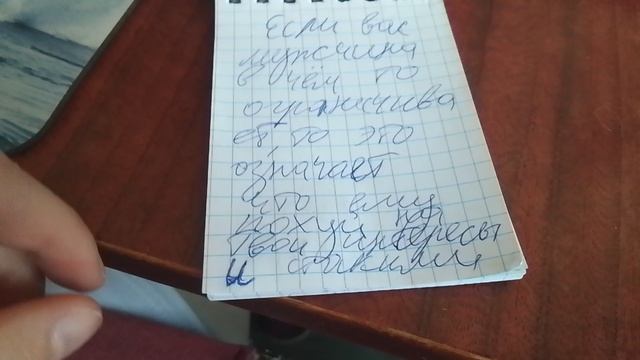 Если вас
мужчина
в чём то
ограничива
ет, то это
означает
что ему
похуй на
твои интересы
и с такими